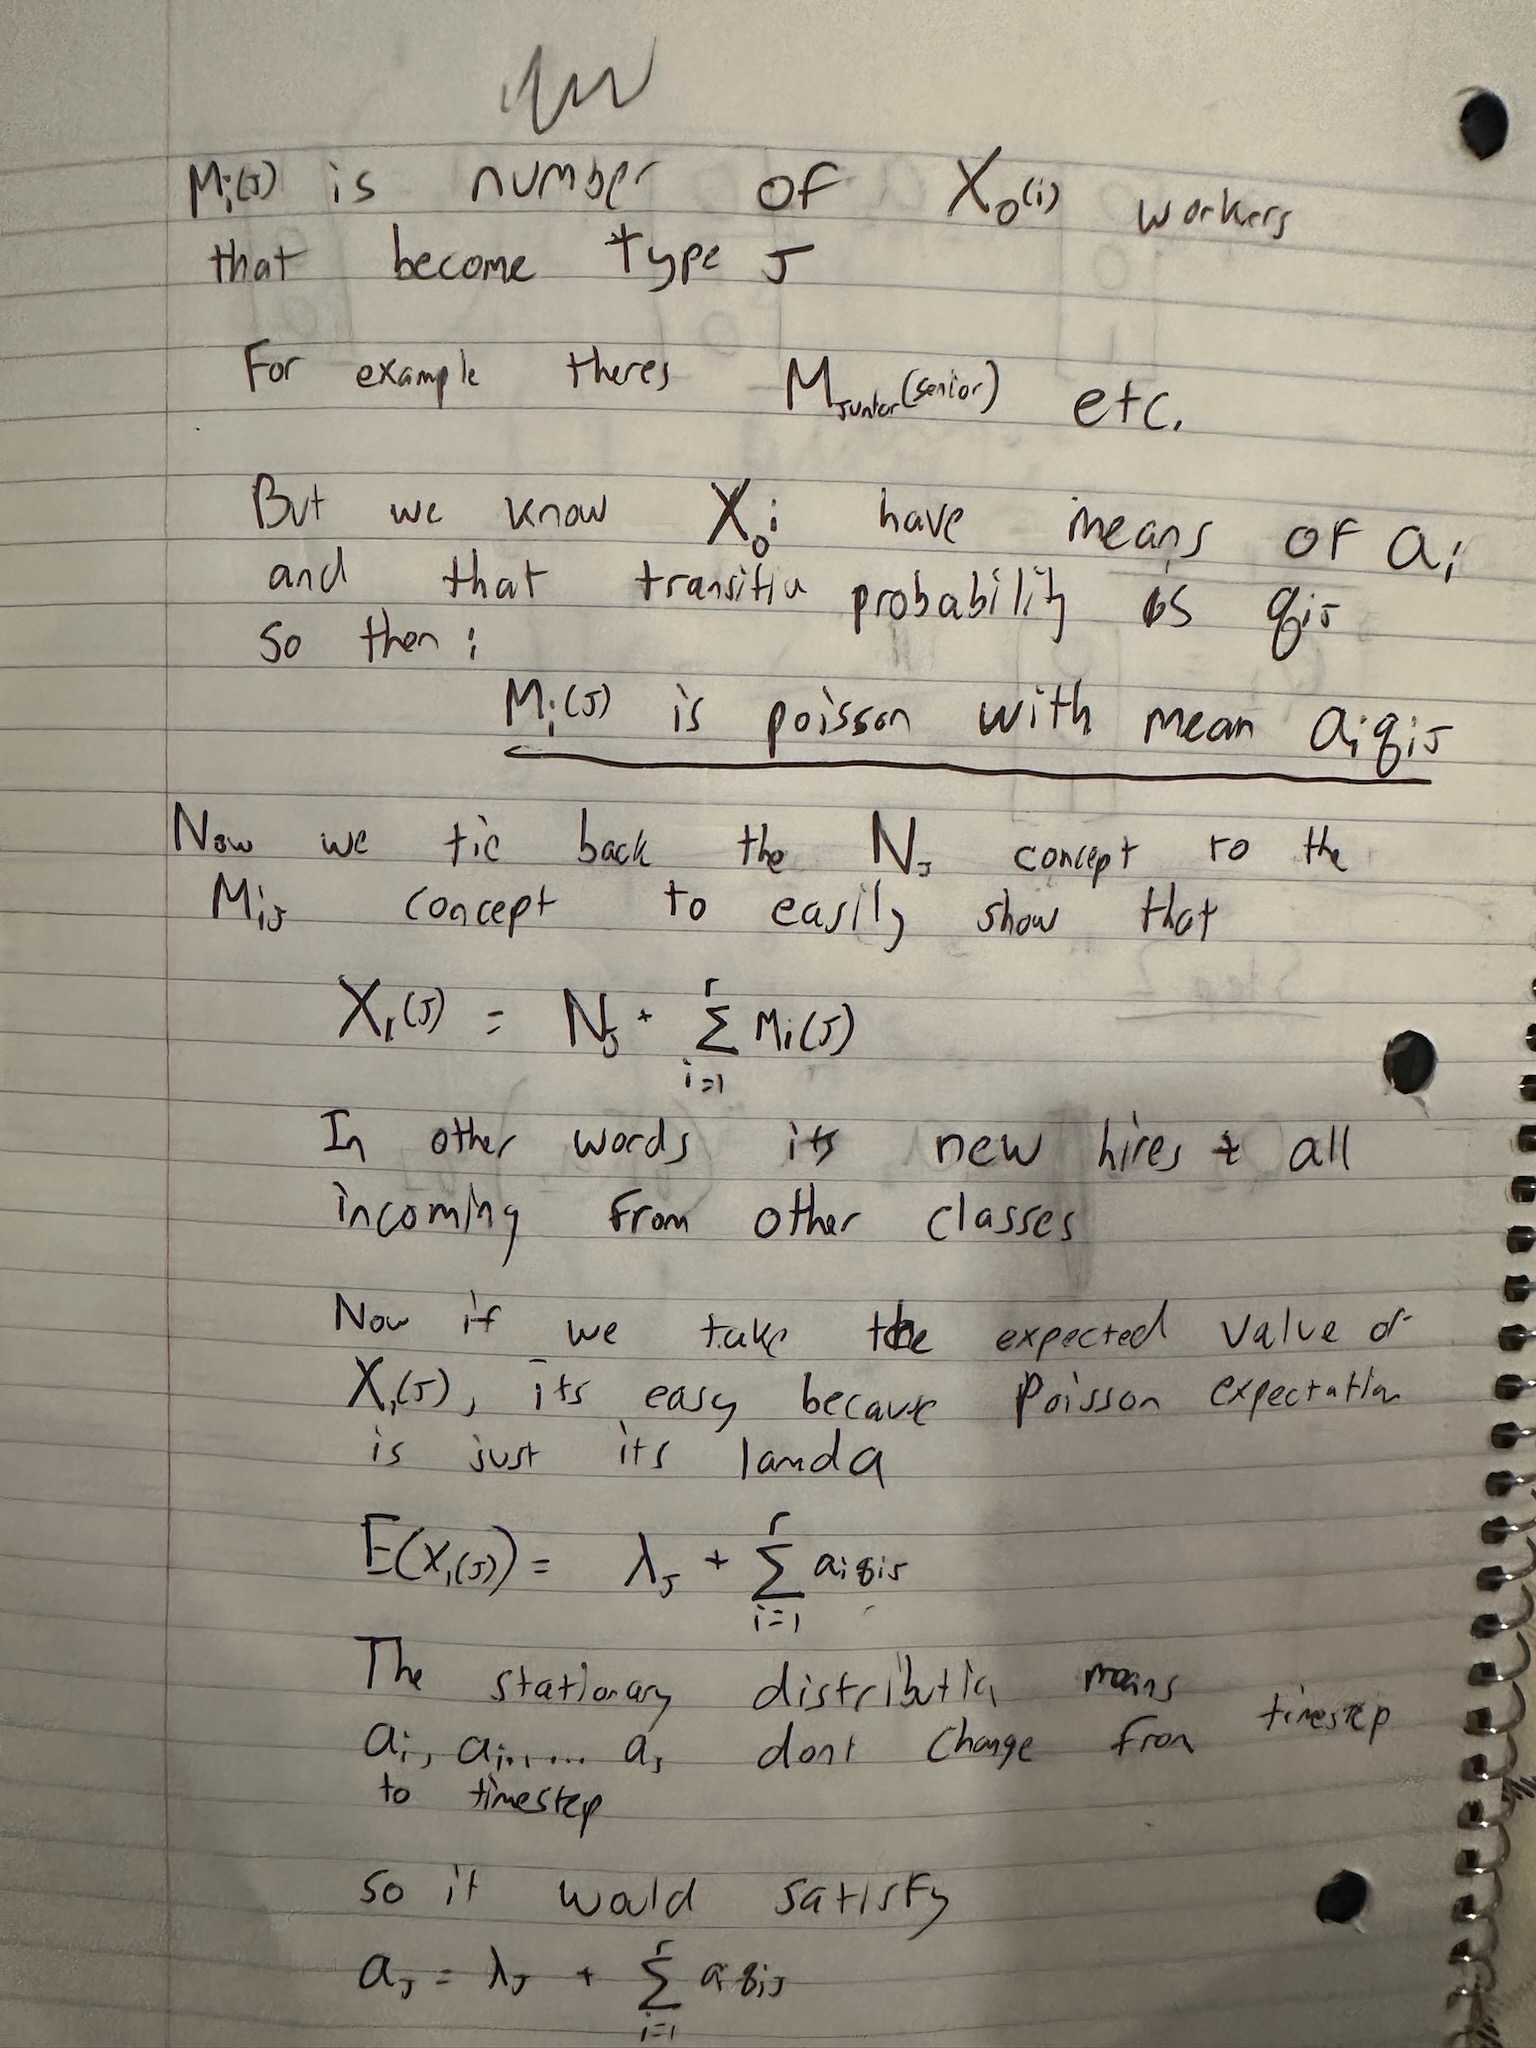 M_i(J) is number of X_0(i) workers
that become type J
For example theres M_junior(senior) etc.
But we know X_0i have means of a_i
and that transitiu probability is q_iJ
so then:
M_i(J) is poisson with mean a_i q_iJ
Now we tie back the N_J concept to the
M_iJ concept to easily show that
X_1(J) = N_J + Σ_{i=1}^{r} M_i(J)
In other words its new hires + all
incoming from other classes
Now if we take the expected value of
X_1(J), its easy because Poisson expectation
is just its lamda
E(X_1(J)) = λ_J + Σ_{i=1}^{r} a_i q_iJ
The stationary distributin means
a_i, a_i,.... a_J dont change from timestep
to timestep
so it would satisfy
a_J = λ_J + Σ_{i=1}^{r} a_i q_iJ